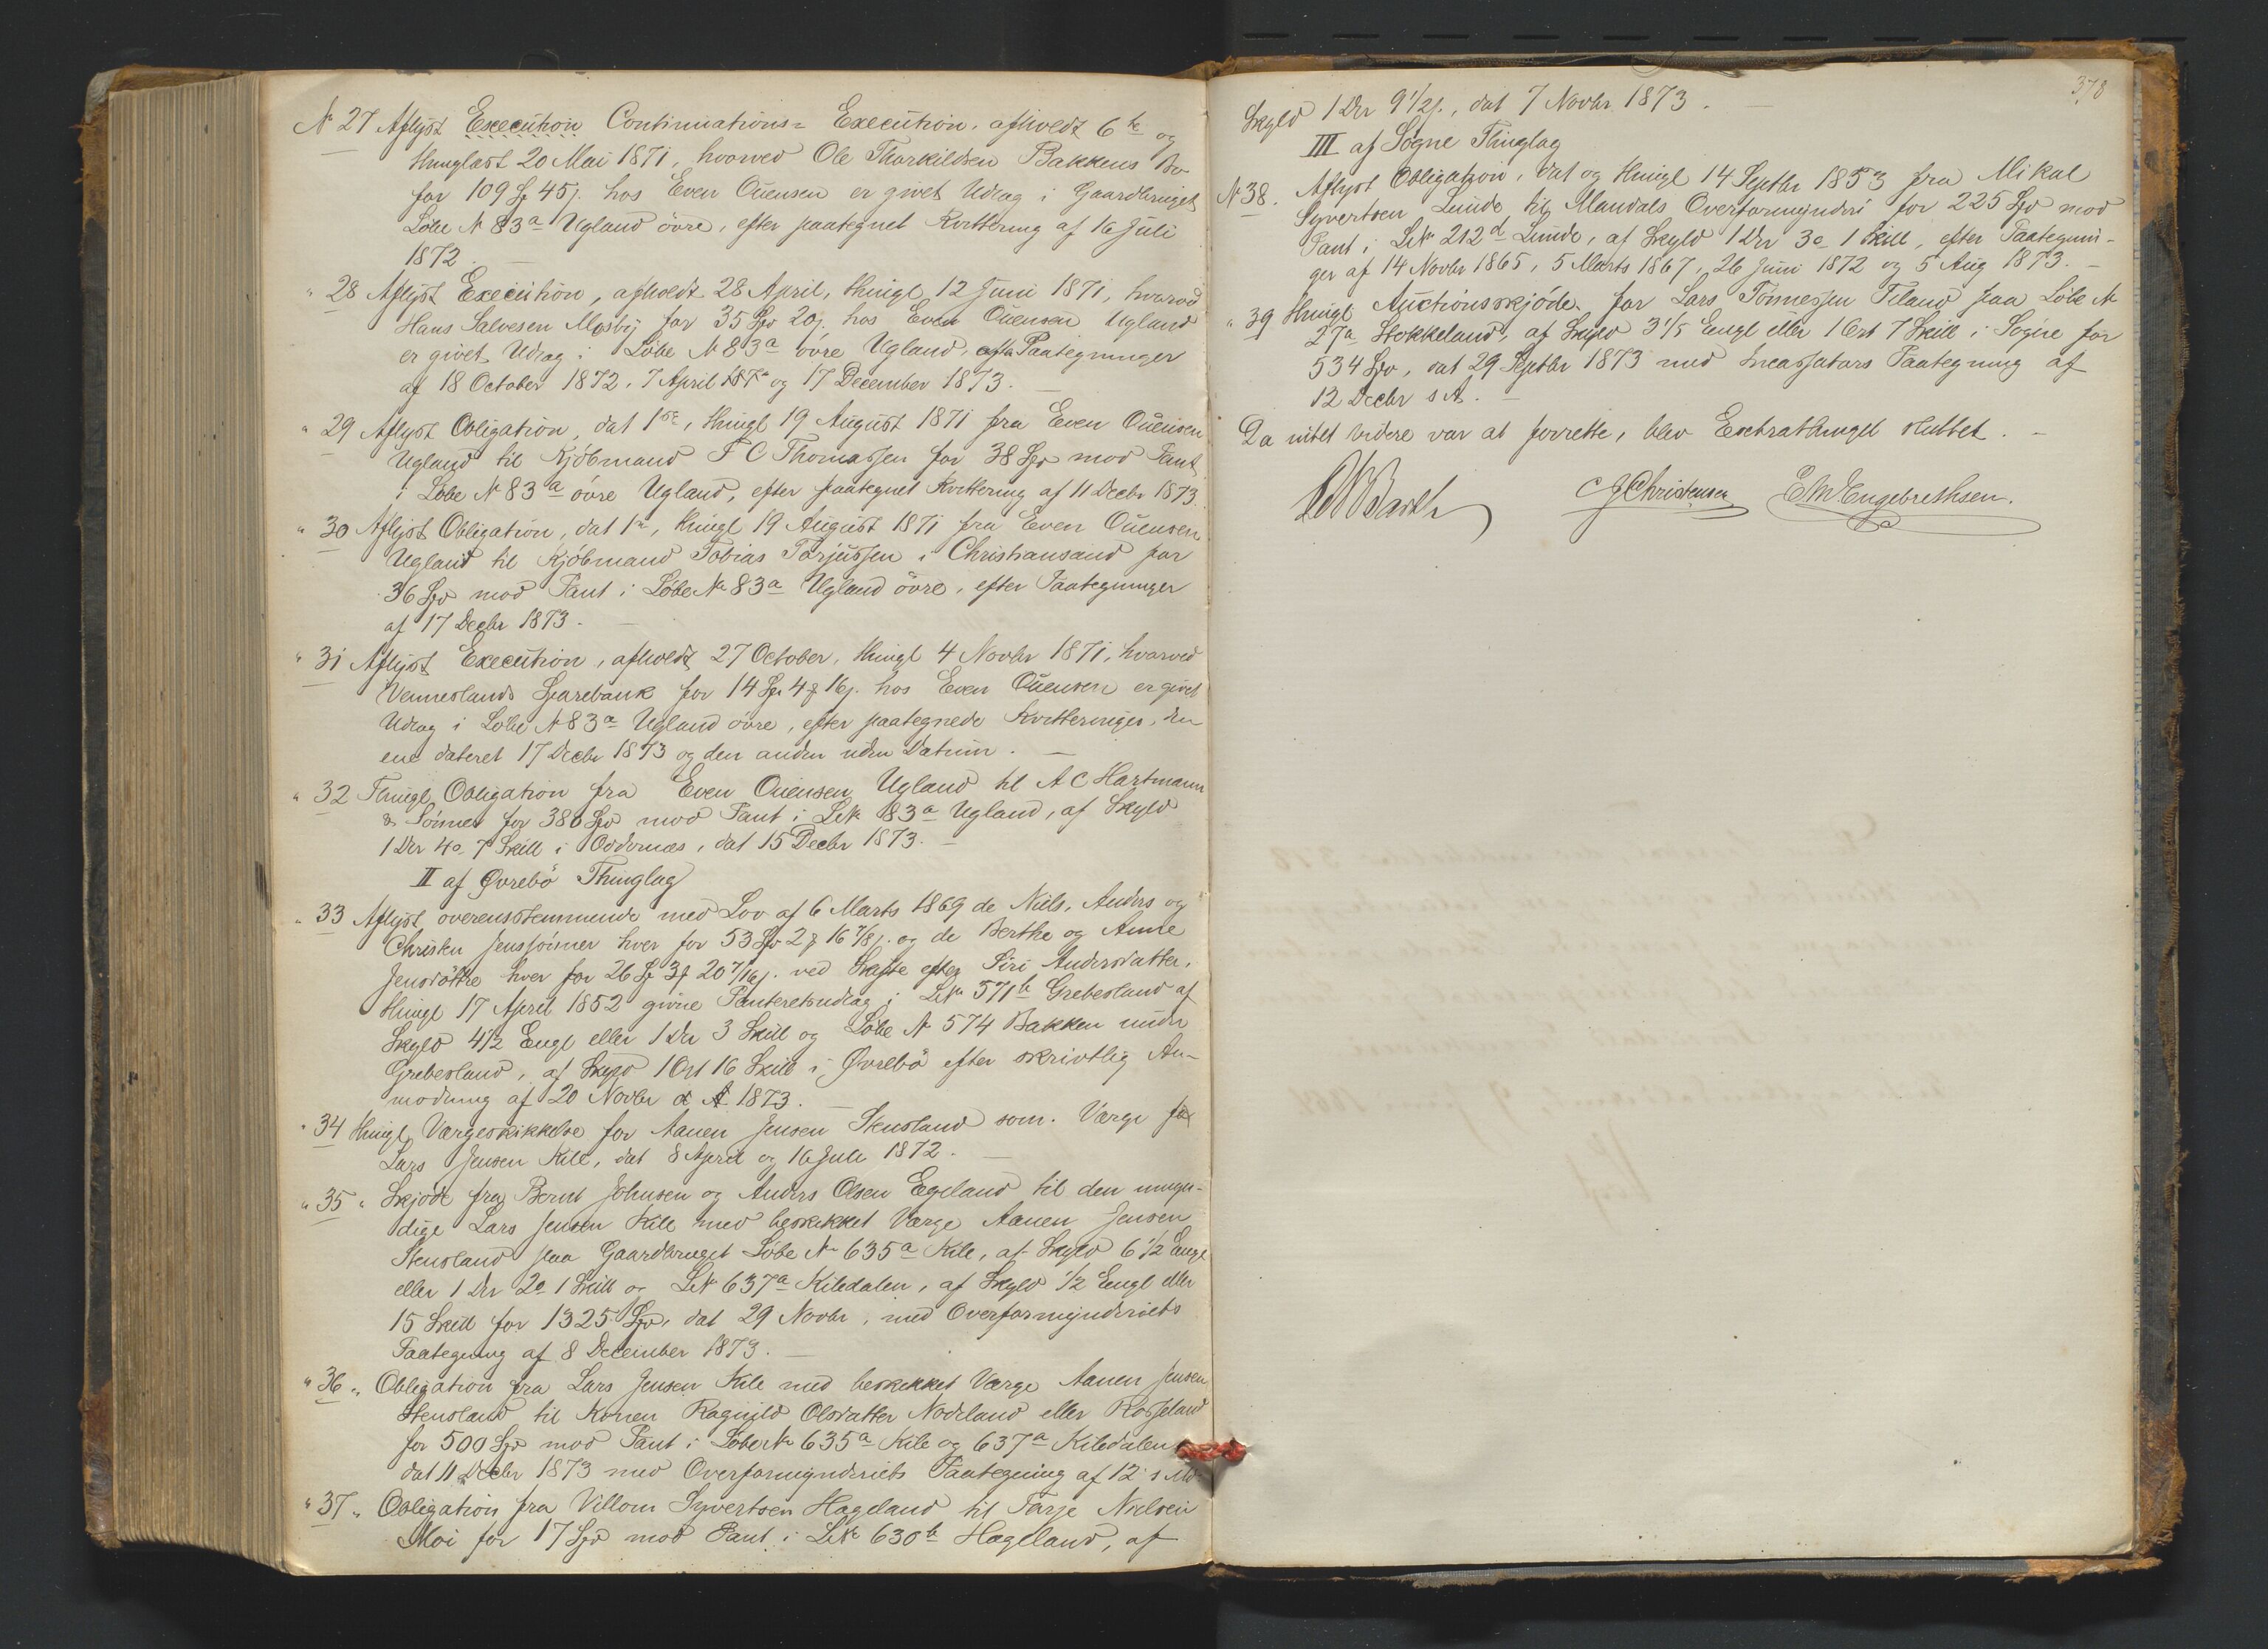 N 27 Aflyst Execution Continuations= Execution, afholdt 6te og
thinglæst 20 Mai 1871, hvorved Ole Tharkildsen Bakkens Bo
for 109 Sp 45 s. hos Even Ouensen er givet Udlæg i Gaardbruget
Löbe N 83a Ugland övre, efter paategnet Kvittering af 16 Juli
1872. —
" 28 Aflyst Execution, afholdt 28 April, thingl 12 Juni 1871, hvorved
Hans Salvesen Mosby for 35 Spd 20 s. hos Even Ouensen Ugland
er givet Udlæg i Löbe N 83a övre Ugland, efter Paategninger
af 18 October 1872, 7 April og 17 December 1873. —
" 29 Aflyst Obligation, dat 1ste, thingl 19 August 1871 fra Even Ouensen
Ugland til Kjöbmand F C Thomassen for 38 Spd mod Pant
i Löbe N 83a övre Ugland, efter paategnet Kvittering af 11 Decbr 1873.
" 30 Aflyst Obligation, dat 1ste, thingl 19 August 1871 fra Even Ouensen
Ugland til Kjöbmand Tobias Tarjussen i Christiansand for
36 Spd mod Pant i Löbe No 83a Ugland övre, efter Paategninger
af 17 Decbr 1873. —
" 31 Aflyst Execution, afholdt 27 October, thingl 4 Novbr 1871, hvorved
Venneslands Sparebank for 14 Sp 4 16 s. hos Even Ouensen er givet
Udlæg i Löbe N 83a Ugland övre, efter paategnede Kvitteringer, den
ene dateret 17 Decbr 1873 og den anden uden Datum. —
" 32 Thingl Obligation fra Even Ouensen Ugland til A C Hartmann
& Sönner for 380 Spd mod Pant i LN 83a Ugland, af Skyld
1 Dlr 4o 7 Skill i Oddernæs, dat 15 Decbr 1873. —
II af Øvrebö Thinglag
" 33 Aflyst overensstemmende med Lov af 6 Marts 1869 de Niels, Anders og
Christen Jenssönner hver for 53 Spd 2 16 7/8 s. og de Berthe og Anne
Jensdöttre hver for 26 Sp 3 20 7/16 s. ved Skifte efter Siri Andersdatter,
thingl 17 April 1852 givne Panteretsudlæg i LNo 571b Grebesland af
Skyld 4 1/2 Engl eller 1 Dlr 3 Skill og Löbe N 574 Bakken under
Grebesland, af Skyld 1 Ort 16 Skill i Øvrebö efter skrivtlig An-
modning af 20 Novbr 1873. —
" 34 thingl Værgeskikkelse for Aanen Jensen Stensland som Værge for
Lars Jensen Kile, dat 8 April og 16 Juli 1872. —
" 35 " Skjöde fra Bernt Johnsen og Anders Olsen Egeland til den umyn-
dige Lars Jensen Kile med beskikket Værge Aanen Jensen
Stensland paa Gaardbruget Löbe No 635a Kile, af Skyld 6 1/2 Engl
eller 1 Dlr 2o 1 Skill og LN 637a Kiledalen, af Skyld 1/2 Engl eller
15 Skill for 1325 Spd, dat 29 Novbr, med Overformynderiets
Paategning af 8 December 1873. —
" 36 " Obligation fra Lars Jensen Kile med beskikket Værge Aanen Jensen
Stensland til Konen Ragnild Olsdatter Nodeland eller Rosseland
for 500 Spd mod Pant i Löbe No 635a Kile og 637a Kiledalen
dat 11 Decbr 1873 med Overformynderiets Paategning af 12 s Md.
" 37 " Obligation fra Villom Syvertsen Hageland til Tarje Nielsen
Moi for 17 Spd mod Pant i LNo 630b Hageland, af
378
Skyld 1 Dlr 9 1/2 s., dat 7 Novbr 1873. —
III af Sögne Thinglag
N 38. Aflyst Obligation, dat og thingl 14 Septbr 1853 fra Mikal
Syvertsen Lunde til Mandals Overformynderi for 225 Spd mod
Pant i LNo 212d Lunde, af Skyld 1 Dlr 3o 1 Skill, efter Paategnin-
ger af 14 Novbr 1865, 5 Marts 1867, 26 Juni 1872 og 5 Aug 1873. —
" 39 thingl Auctionsskjöde for Lars Tönnessen Teland paa Löbe N
27a Stokkeland, af Skyld 3 1/5 Engl eller 1 Ort 7 Skill i Sögne for
534 Spd, dat 29 Septbr 1873 med Incassators Paategning af
12 Decbr s A. —
Da intet videre var at forrette, blev Extrathinget sluttet. —
J Christensen EM Engebrethsen.